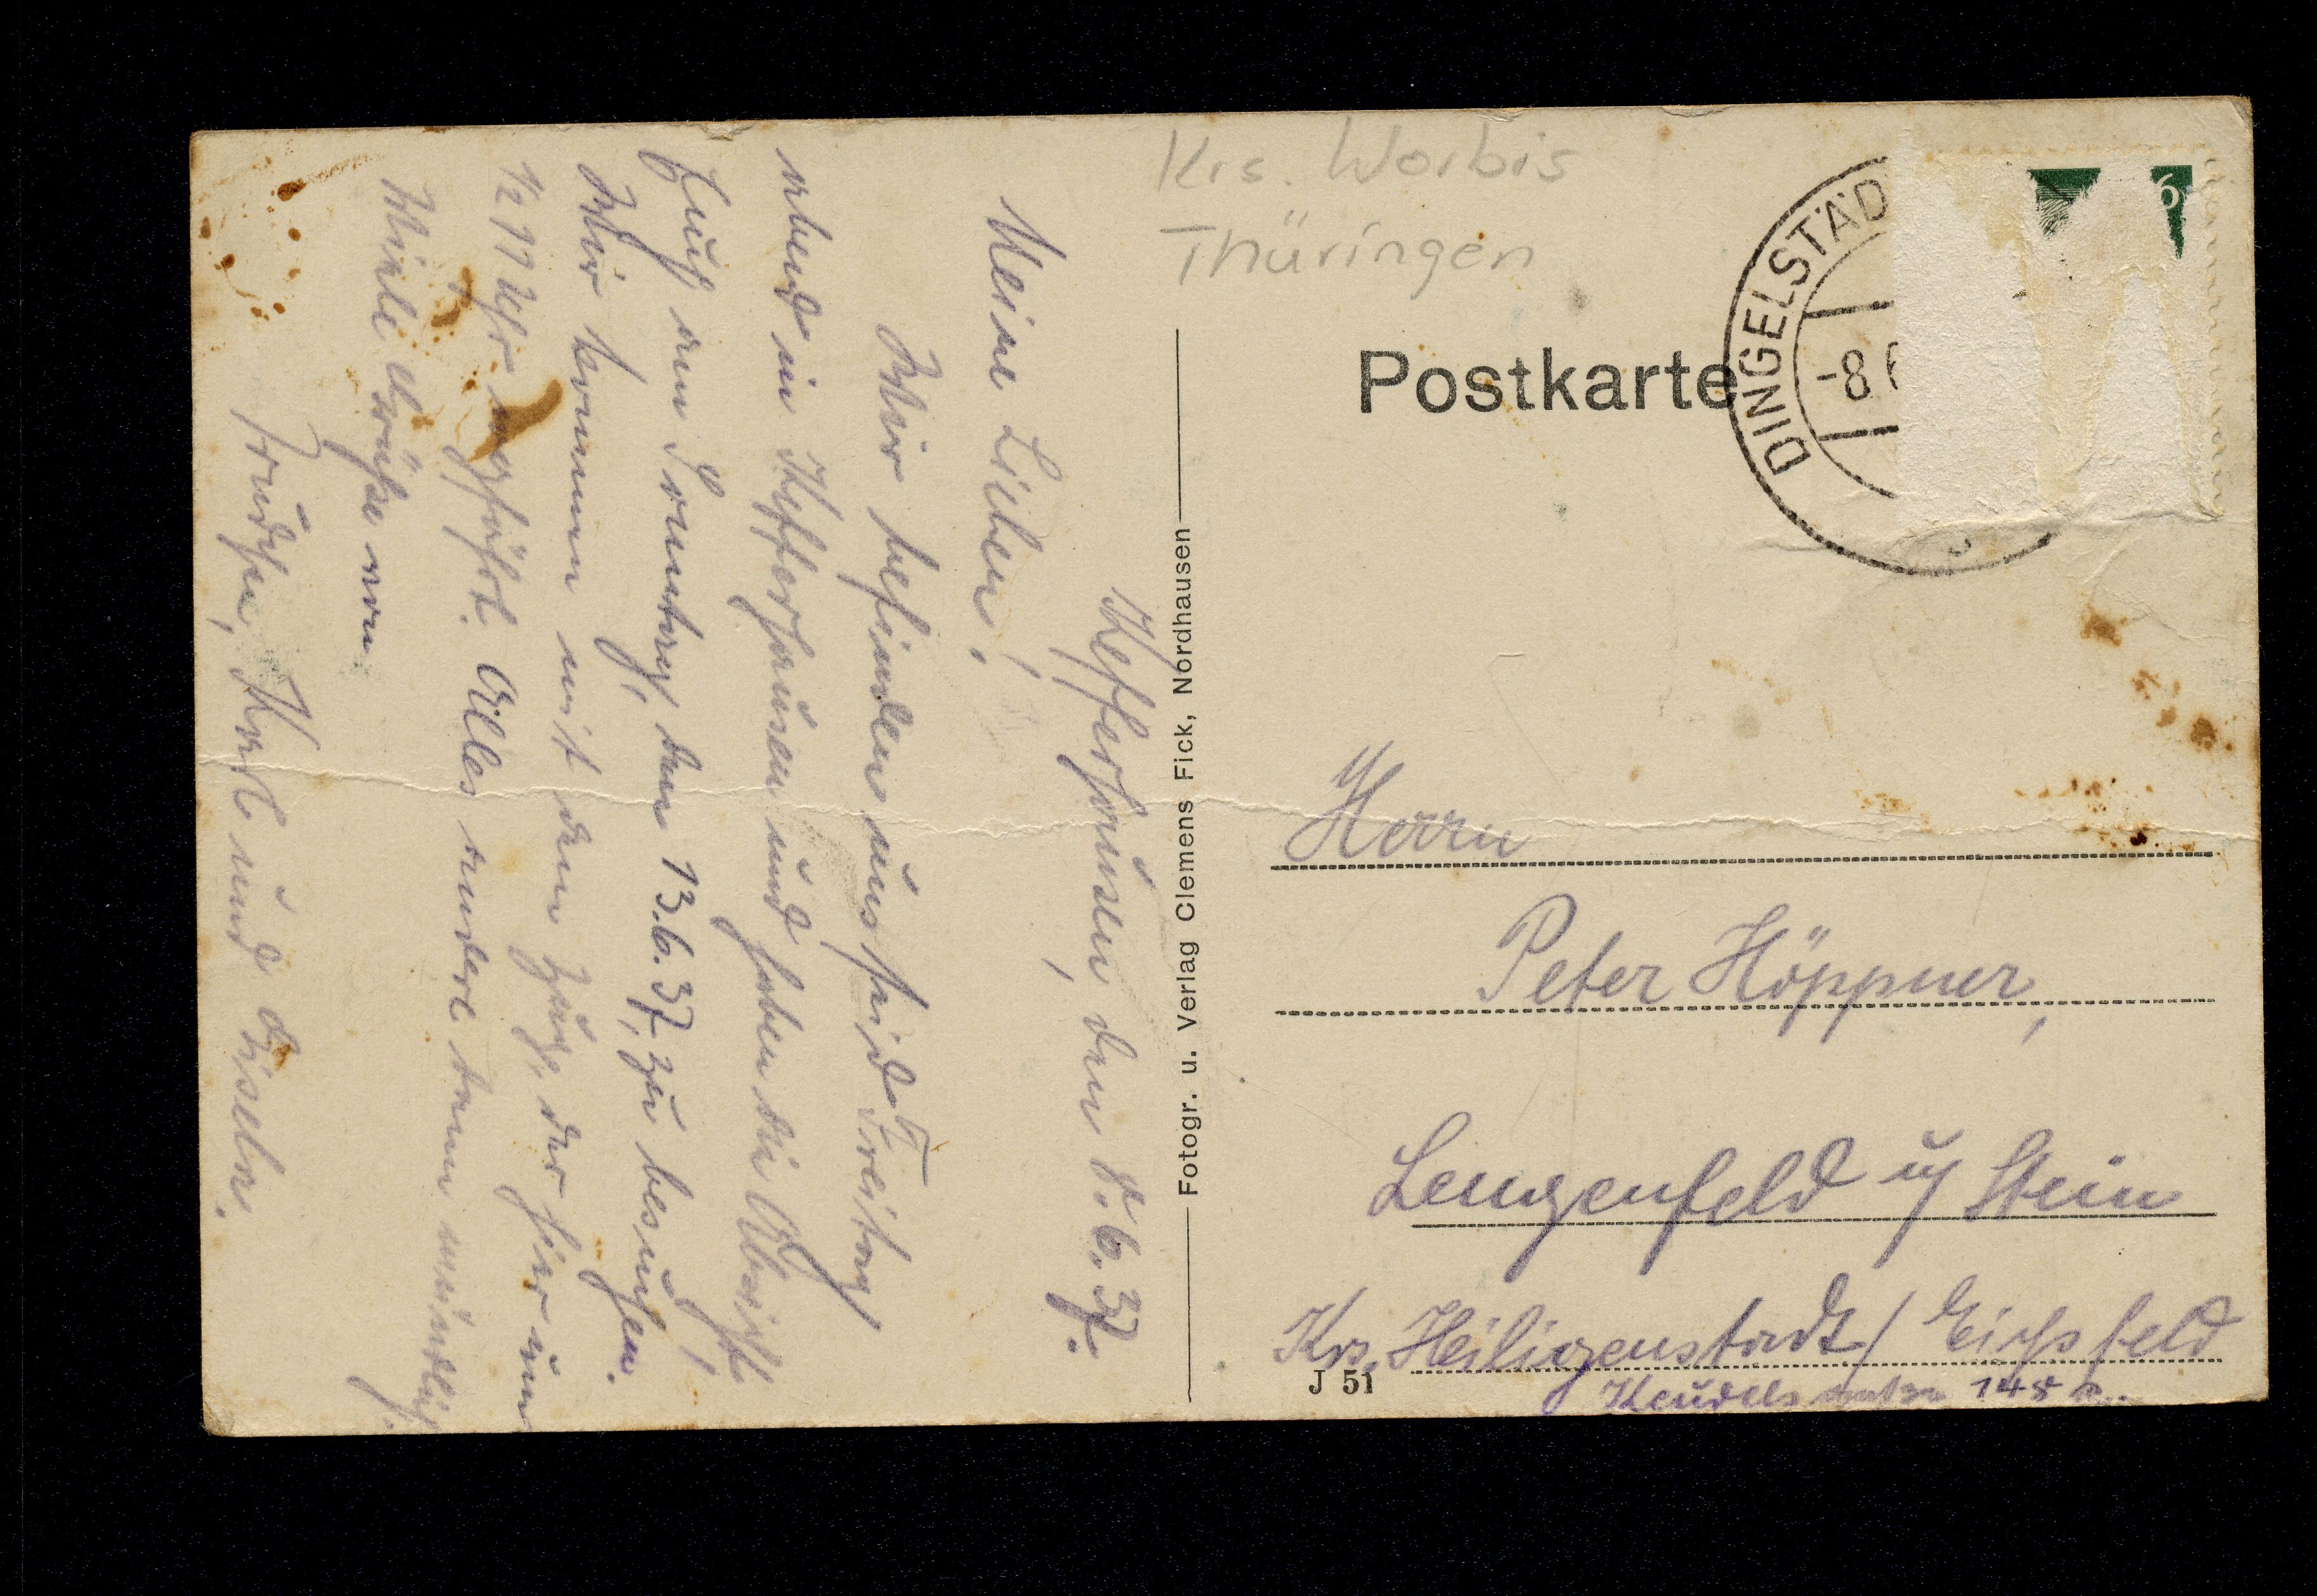 Krs. Worbis
Thüringen
Postkarte
DINGELSTÄD
-8.6
6
Kefferhausen, den 8.6.37.
Meine Lieben!
Wir befinden uns seid Freitag
abend in Kefferhausen und haben die Absicht
Euch am Sonntag, den 13.6.37, zu besuchen.
Wir kommen mit dem Zug, der hier um
½ 11 Uhr wegfährt. Alles andere dann mündlich.
Viele Grüße von
Trudchen, Karl und Gisela.
Fotogr. u. Verlag Clemens Fick, Nordhausen
Herrn
Peter Höppner,
Lengenfeld u/ Stein
Krs. Heiligenstadt/ Eichsfeld
J 51
148